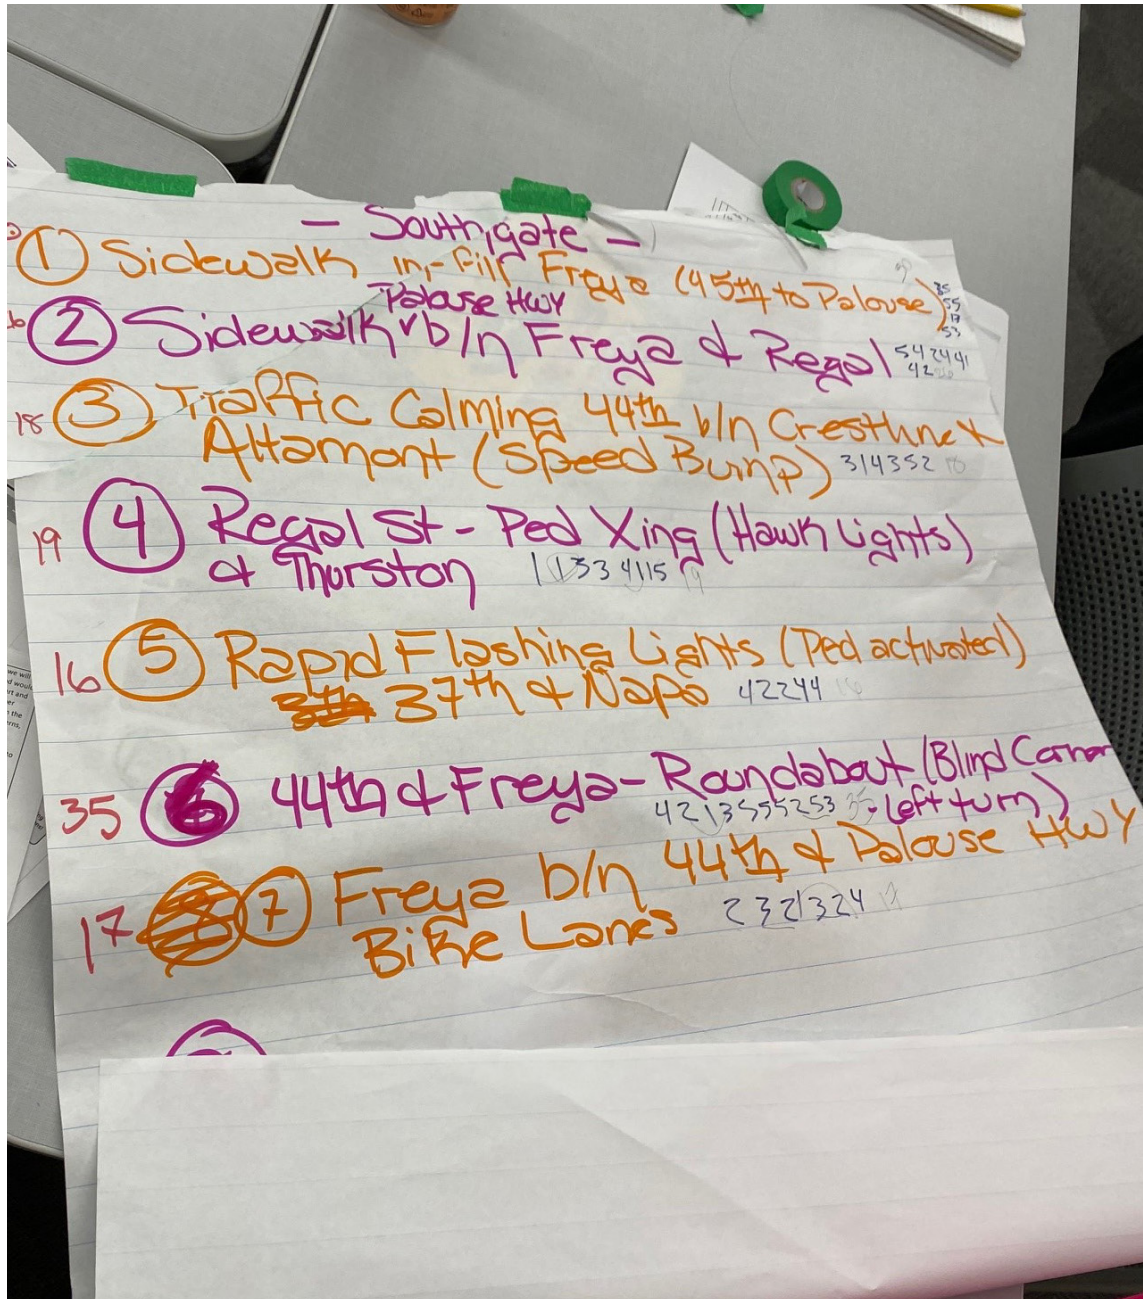 - Southgate -
① Sidewalk in-fill Freya (45th to Palouse)
35
55
17
53
Palouse HWY
② Sidewalk b/n Freya & Regal 542441
42
18 ③ Traffic Calming 44th b/n Cresthne &
Altamont (Speed Bump) 314352 18
19 ④ Regal St - Ped Xing (Hawk Lights)
& Thurston 11334115 19
16 ⑤ Rapid Flashing Lights (Ped activated)
37th & Napa 42244 16
35 6 44th & Freya - Roundabout (Blind Corner
4213555253 35 - left turn)
17 ⑦ Freya b/n 44th & Palouse HWY
Bike Lanes 2321324 17